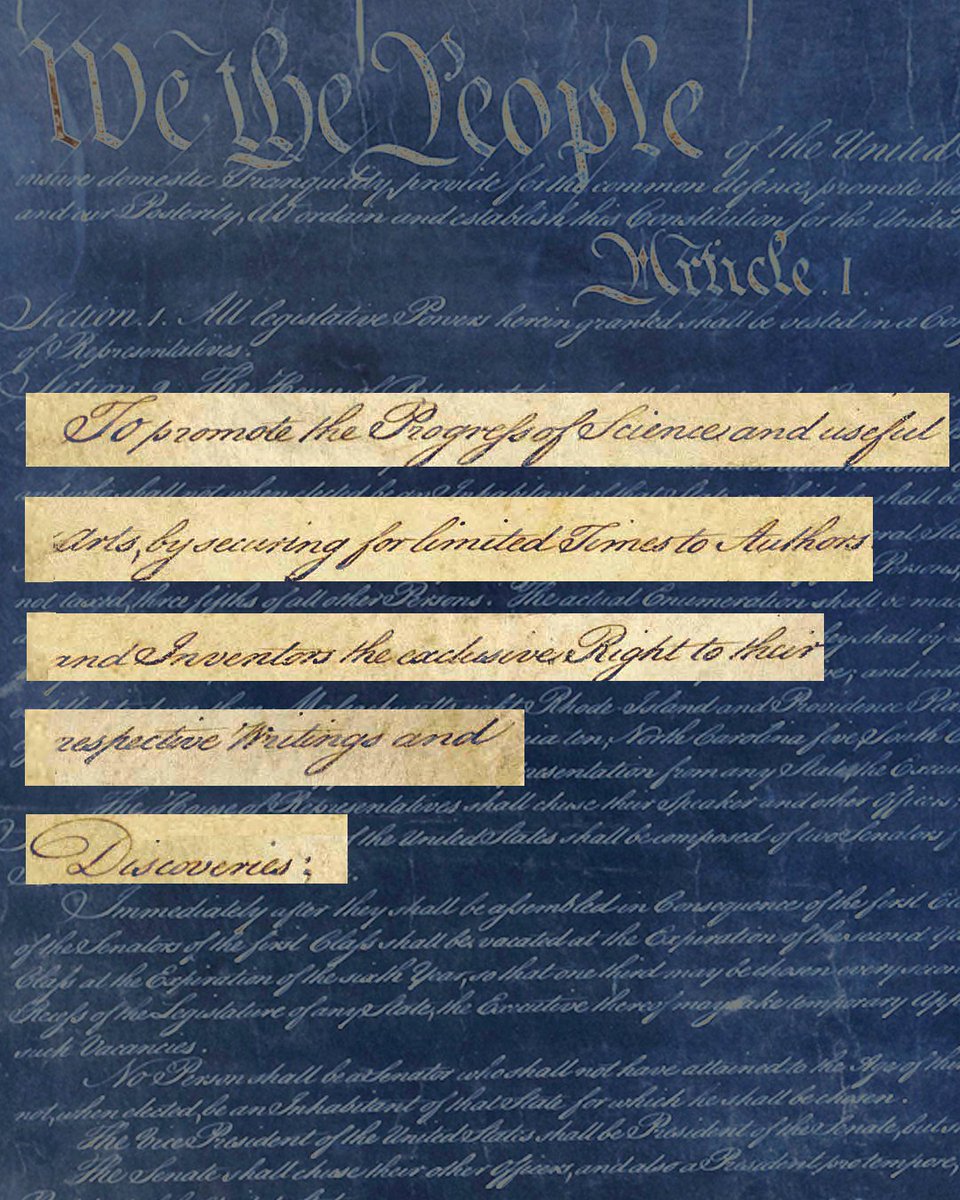 We the People of the United
insure domestic Tranquility, provide for the common defence, promote the
and our Posterity, do ordain and establish this Constitution for the United
Article. I.
Section. 1. All legislative Powers herein granted shall be vested in a Con
of Representatives.
Section. 2. The House of
To promote the Progress of Science and useful
shall be
Arts, by securing for limited Times to Authors
Persons,
not taxed, three fifths of all other Persons. The actual Enumeration shall be made
and Inventors the exclusive Right to their
shall
Rhode-Island and Providence Pla
respective Writings and
North Carolina five, South C
Representation from any State, the Execu
The House of Representatives shall chuse their Speaker and other Officers
Discoveries;
the United States shall be composed of two Senators
Immediately after they shall be assembled in Consequence of the first El
of the Senators of the first Class shall be vacated at the Expiration of the second Y
Class at the Expiration of the sixth Year, so that one third may be chosen every secon
Recess of the Legislature of any State, the Executive thereof may make temporary App
such Vacancies.
No Person shall be a Senator who shall not have attained to the Age of the
not, when elected, be an Inhabitant of that State for which he shall be chosen.
The Vice President of the United States shall be President of the Senate, but s
The Senate shall chuse their other Officers, and also a President pro tempore,